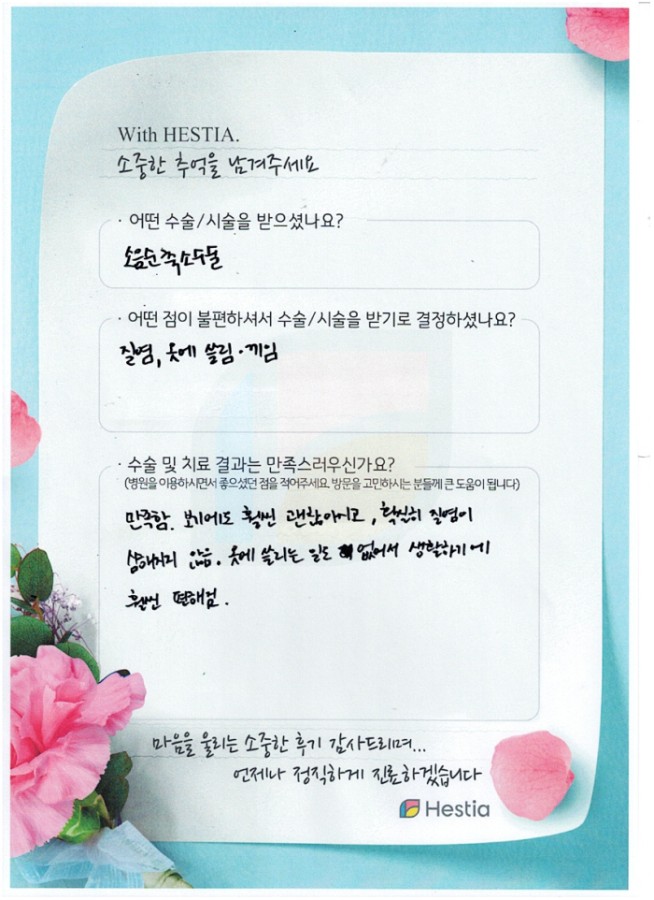 With HESTIA.
소중한 추억을 남겨주세요
· 어떤 수술/시술을 받으셨나요?
소음순축소수술
· 어떤 점이 불편하셔서 수술/시술을 받기로 결정하셨나요?
질염, 옷에 쓸림·끼임
· 수술 및 치료 결과는 만족스러우신가요?
(병원을 이용하시면서 좋으셨던 점을 적어주세요. 방문을 고민하시는 분들께 큰 도움이 됩니다)
만족함. 보기에도 훨씬 괜찮아지고, 확실히 질염이
심해지지 않음. 옷에 쓸리는 일도 없어서 생활하기에
훨씬 편해짐.
마음을 울리는 소중한 후기 감사드리며...
언제나 정직하게 진료하겠습니다
Hestia